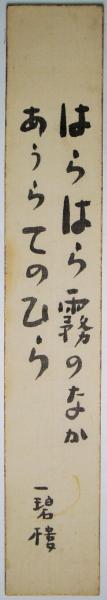 はらはら霧のなか
あうらてのひら
一碧樓